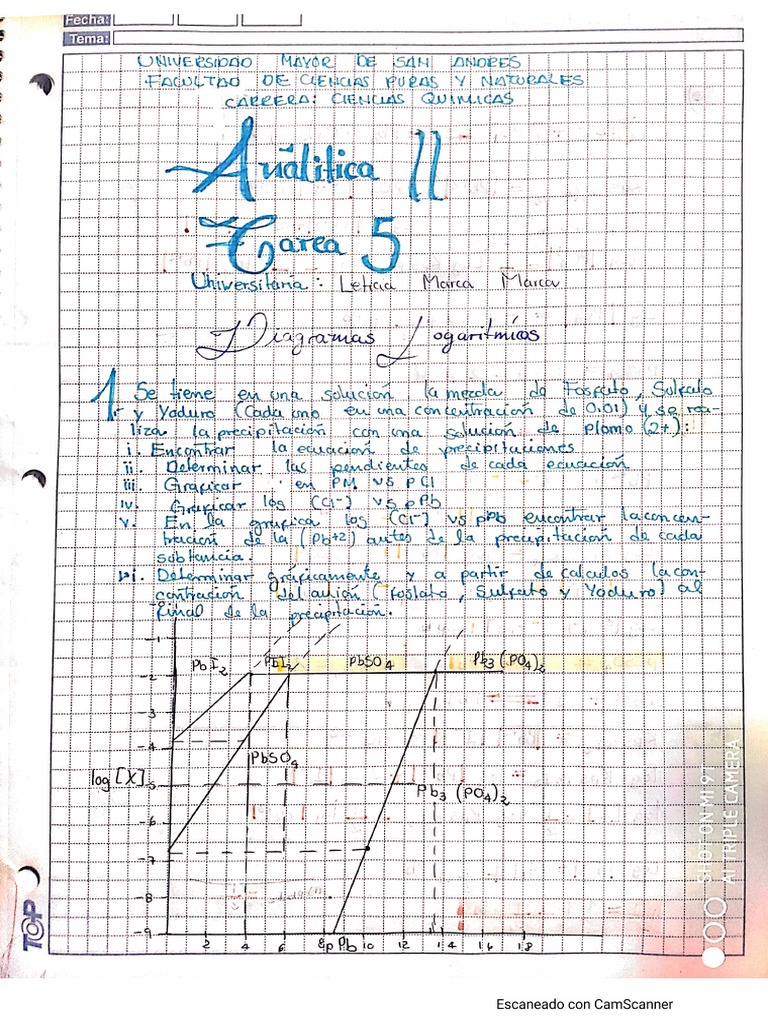 Fecha:
Tema:
UNIVERSIDAD MAYOR DE SAN ANDRES
FACULTAD DE CIENCIAS PURAS Y NATURALES
CARRERA: CIENCIAS QUIMICAS
Análitica II
Tarea 5
Universitaria: Leticia Marca Marca
Diagramas Logaritmicos
1.- Se tiene en una solución la mezcla de Fosfato, Sulfato
y Yoduro (Cada uno en una concentración de 0.01) y se rea-
liza la precipitación con una solución de plomo (2+):
i. Encontrar la ecuación de precipitaciones
ii. Determinar las pendientes de cada ecuación
iii. Graficar en PM vs pCl
iv. Graficar log (Cl-) vs pPb
v. En la grafica log (Cl-) vs pPb encontrar la concen-
tracion de la (Pb+2) antes de la precipitación de cada
sobtancia.
vi. Determinar gráficamente y a partir de calculos la con-
contración del anión (fosfato, Sulfato y Yoduro) al
final de la precipitación.
-1
PbI2 PbI2 PbSO4 Pb3(PO4)2
-2
-3
-4
PbSO4
log [X] -5 Pb3(PO4)2
-6
-7
-8
-9
2 4 6 8 pPb 10 12 14 16 18
TOP
SHOT ON MI 9T
AI TRIPLE CAMERA
Escaneado con CamScanner